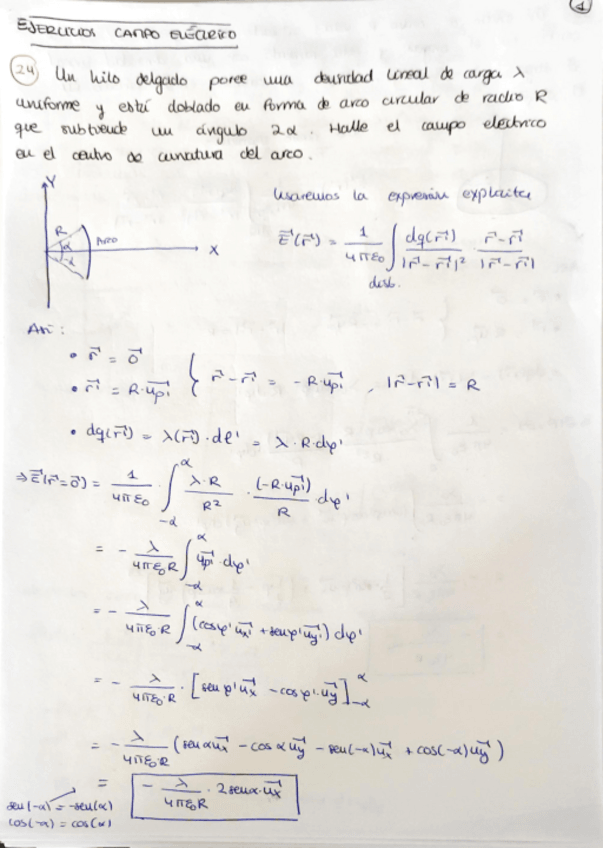 1
EJERCICIOS CAMPO ELÉCTRICO
24 Un hilo delgado posee una densidad lineal de carga λ
uniforme y está doblado en forma de arco circular de radio R
que subtiende un ángulo 2α. Halle el campo eléctrico
en el centro de curvatura del arco.
Usaremos la expresión explícita
Y R α -α Arco X
E⃗(r⃗) = 1/(4πε₀) ∫dist. dq(r⃗')/|r⃗-r⃗'|² · (r⃗-r⃗')/|r⃗-r⃗'|
Así:
• r⃗ = 0⃗
• r⃗' = R·u⃗ρ' } r⃗-r⃗' = -R·u⃗ρ' , |r⃗-r⃗'| = R
• dq(r⃗') = λ(r⃗')·dl' = λ·R·dφ'
⇒ E⃗(r⃗=0⃗) = 1/(4πε₀) · ∫_{-α}^{α} λ·R/R² · (-R·u⃗ρ')/R · dφ'
= - λ/(4πε₀R) ∫_{-α}^{α} u⃗ρ'·dφ'
= - λ/(4πε₀·R) ∫_{-α}^{α} (cosφ'u⃗x' + senφ'u⃗y') dφ'
= - λ/(4πε₀·R) · [senφ'u⃗x - cosφ'·u⃗y]_{-α}^{α}
= - λ/(4πε₀·R) (senαu⃗x - cosαu⃗y - sen(-α)u⃗x + cos(-α)u⃗y)
= - λ/(4πε₀R) · 2senα·u⃗x
sen(-α) = -sen(α)
cos(-α) = cos(α)